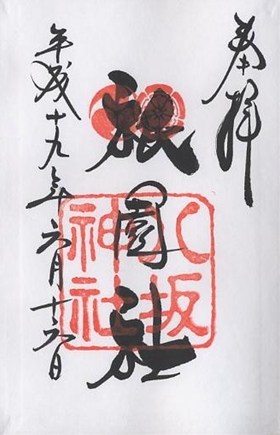 奉拝
祇園社
八坂
神社
平成十九年六月十六日